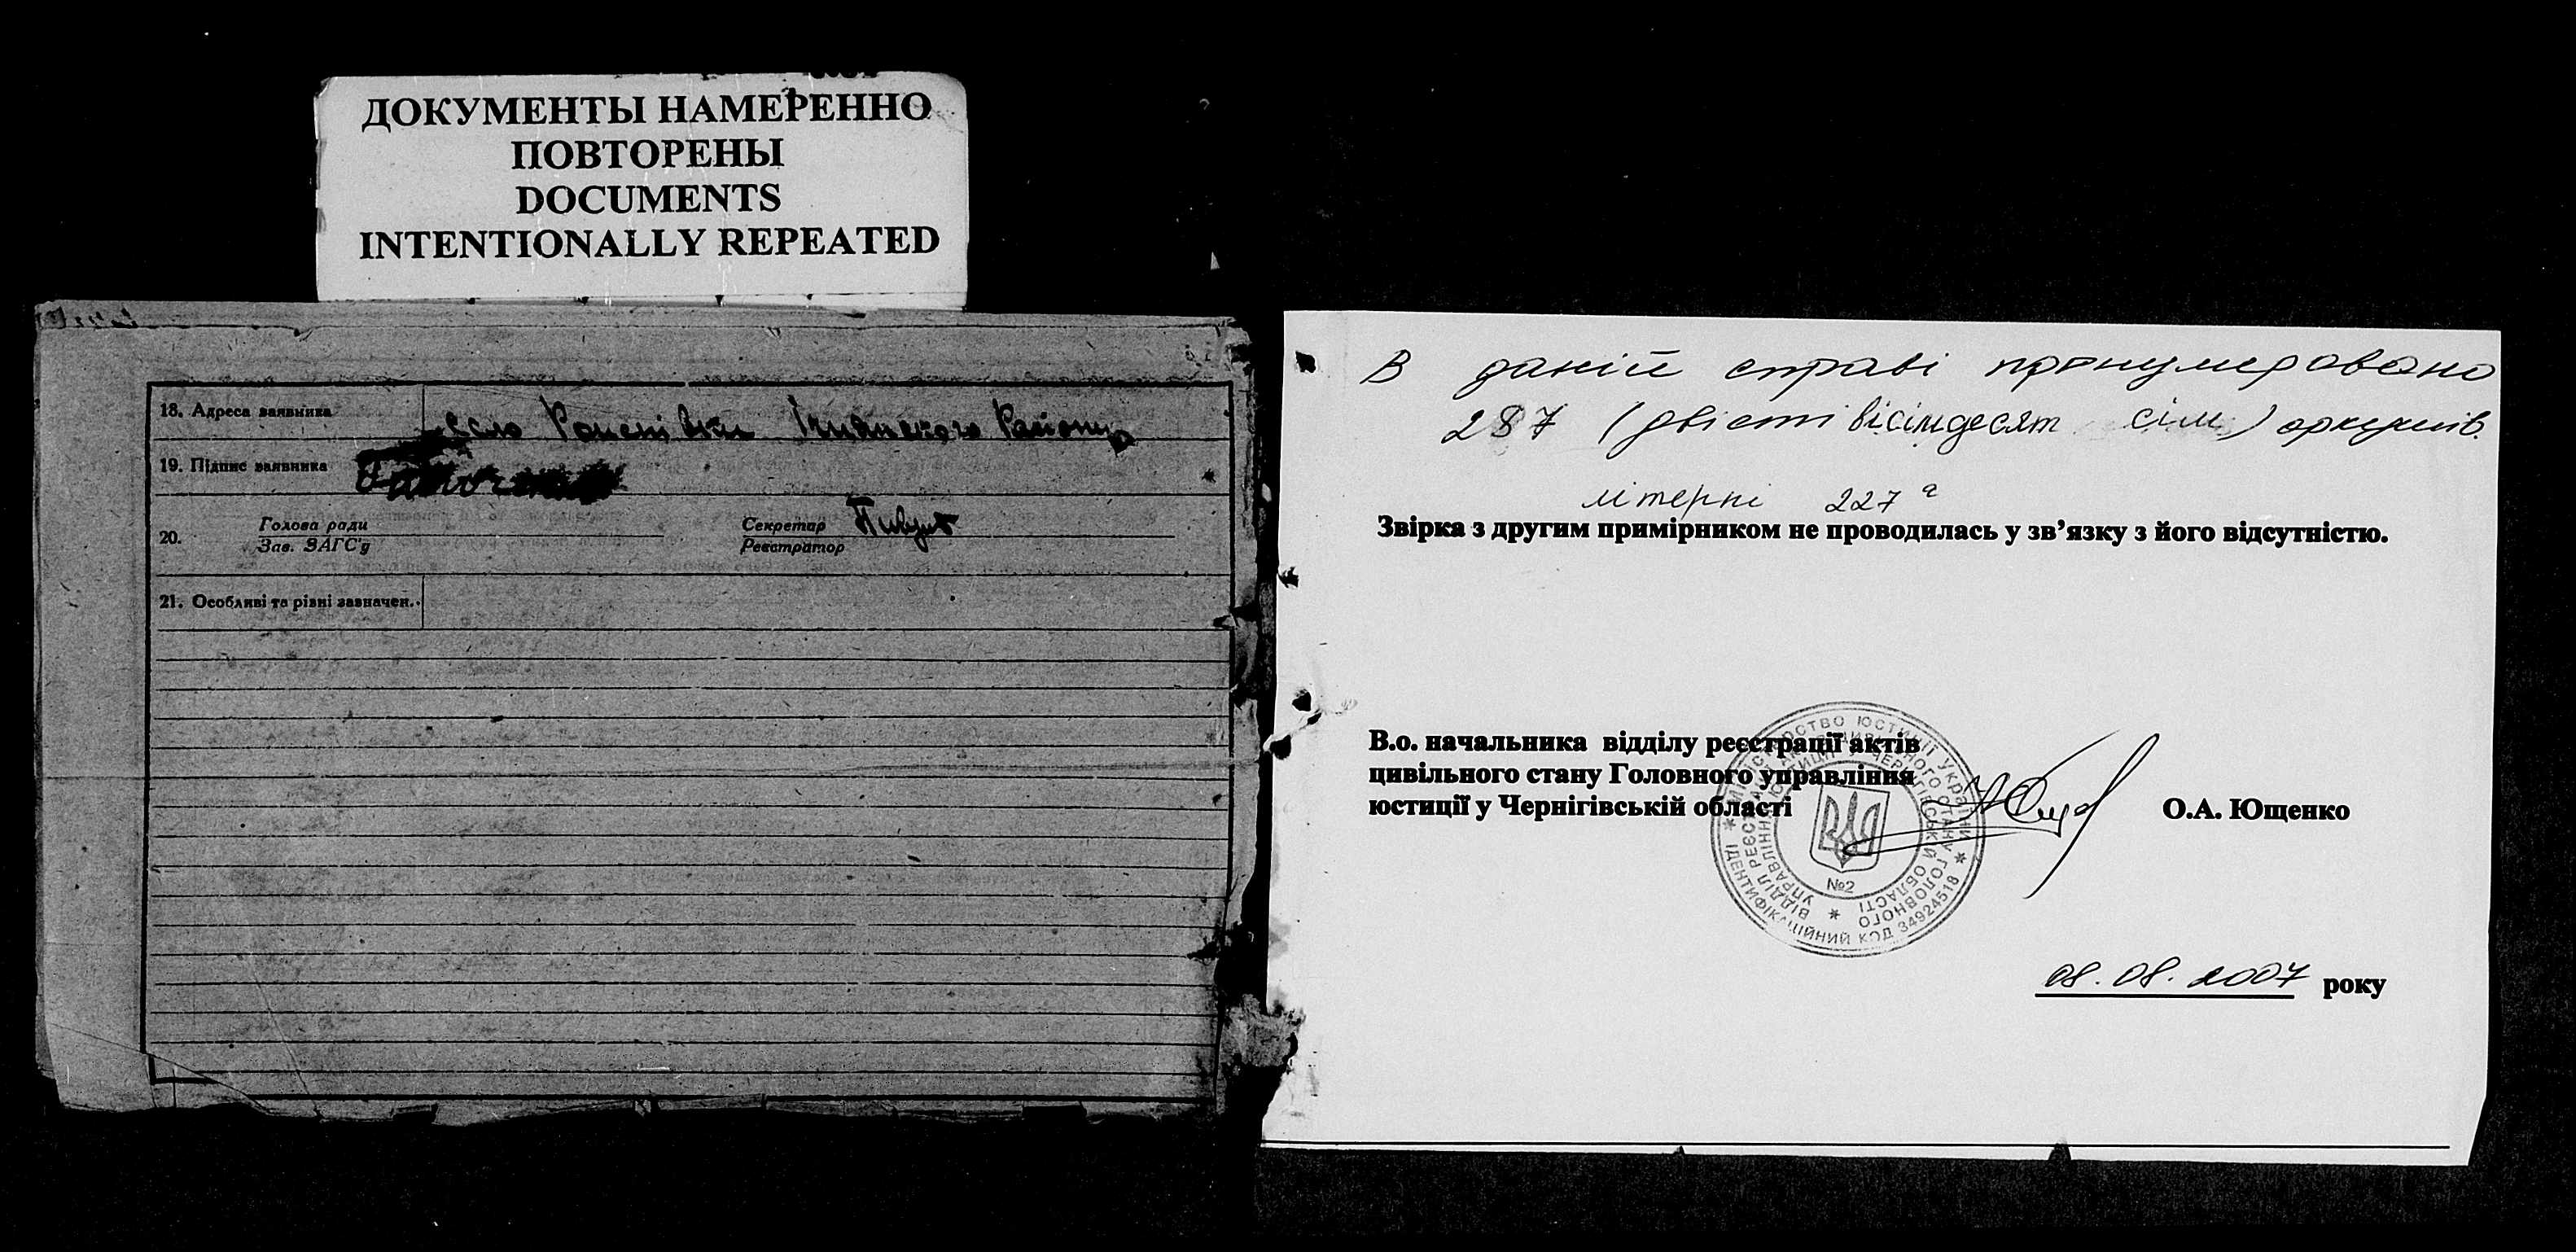 ДОКУМЕНТЫ НАМЕРЕННО
ПОВТОРЕНЫ
DOCUMENTS
INTENTIONALLY REPEATED
18. Адреса заявника село Ічнянського Району
19. Підпис заявника
20. Голова ради Секретар
Зав. ЗАГС'у Реєстратор
21. Особливі та рівні зазначен.
В даній справі пронумеровано
287 (двісті вісімдесят сім) аркушів.
літерні 227 а
Звірка з другим примірником не проводилась у зв’язку з його відсутністю.
В.о. начальника відділу реєстрації актів
цивільного стану Головного управління
юстиції у Чернігівській області О.А. Ющенко
МІНІСТЕРСТВО ЮСТИЦІЇ УКРАЇНИ
ІДЕНТИФІКАЦІЙНИЙ КОД 34924518
ВІДДІЛ РЕЄСТРАЦІЇ АКТІВ ЦИВІЛЬНОГО СТАНУ ГОЛОВНОГО
УПРАВЛІННЯ ЮСТИЦІЇ У ЧЕРНІГІВСЬКІЙ ОБЛАСТІ
№2
08.08.2007 року